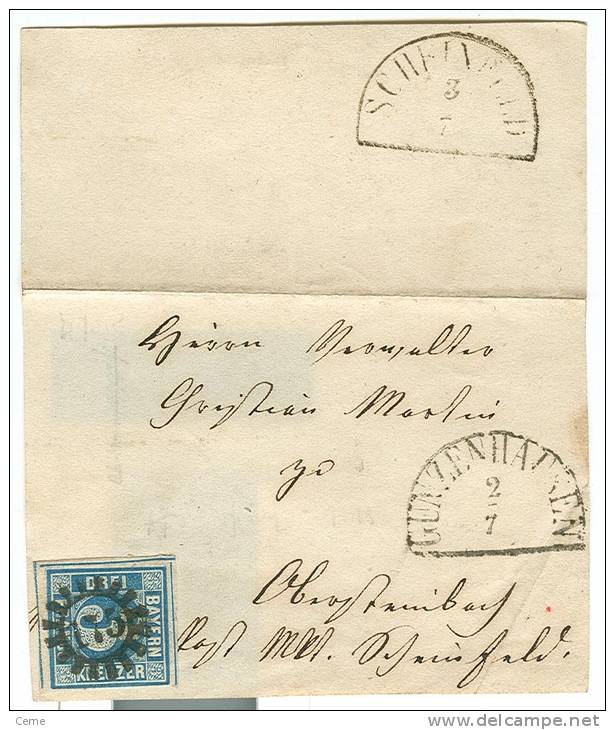 SCHEINFELD
3
7
Herrn Verwalter
Christian Martin
zu
GUNZENHAUSEN
2
7
Obersteinbach
Post Mkt. Scheinfeld.
DREI
BAYERN
KREUZER
3
Ceme
www.delcampe.net